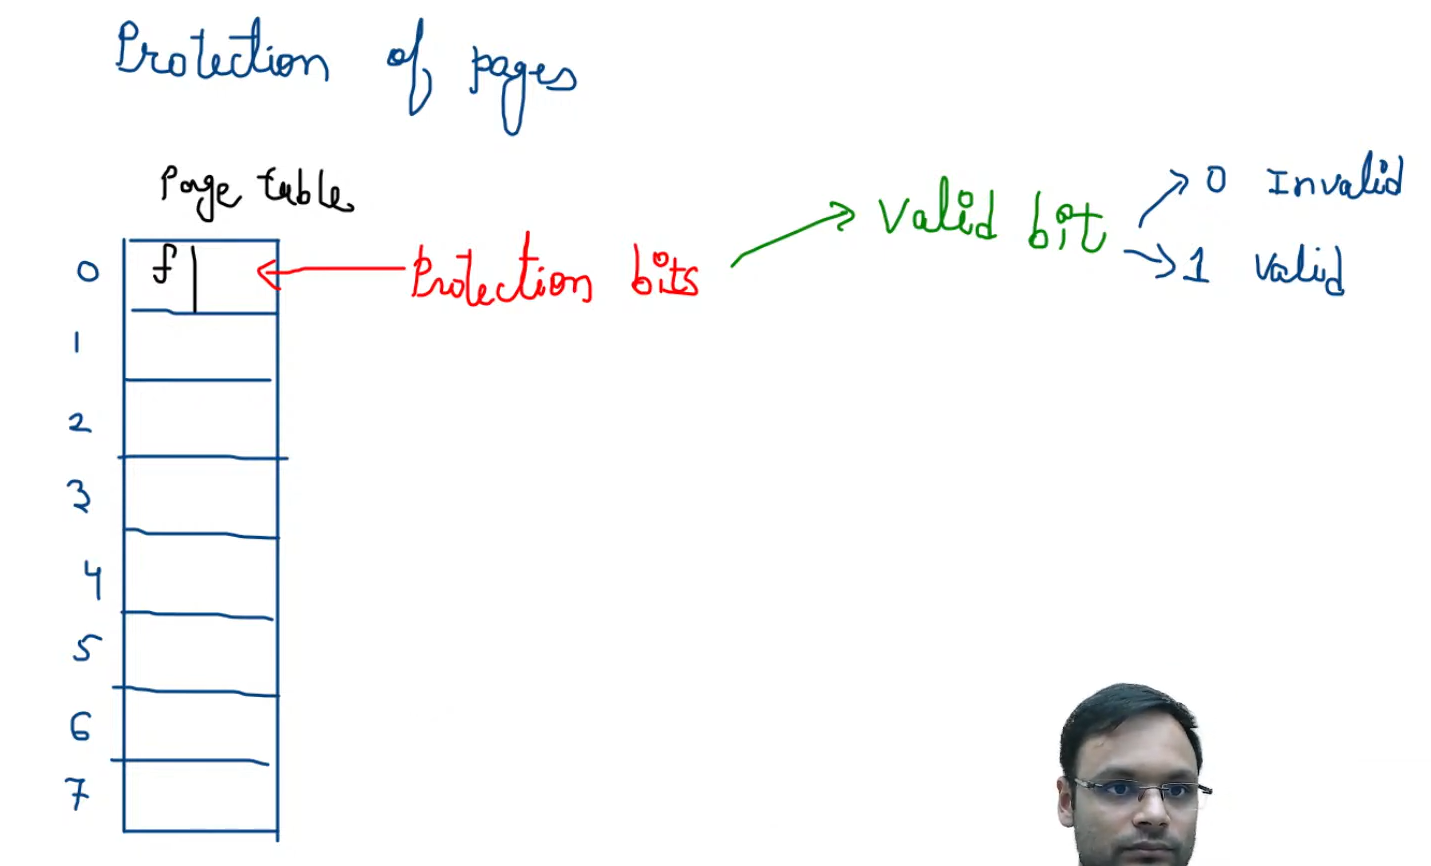 Protection of pages
Page table
0 f
Protection bits
Valid bit
0 Invalid
1 Valid
1
2
3
4
5
6
7